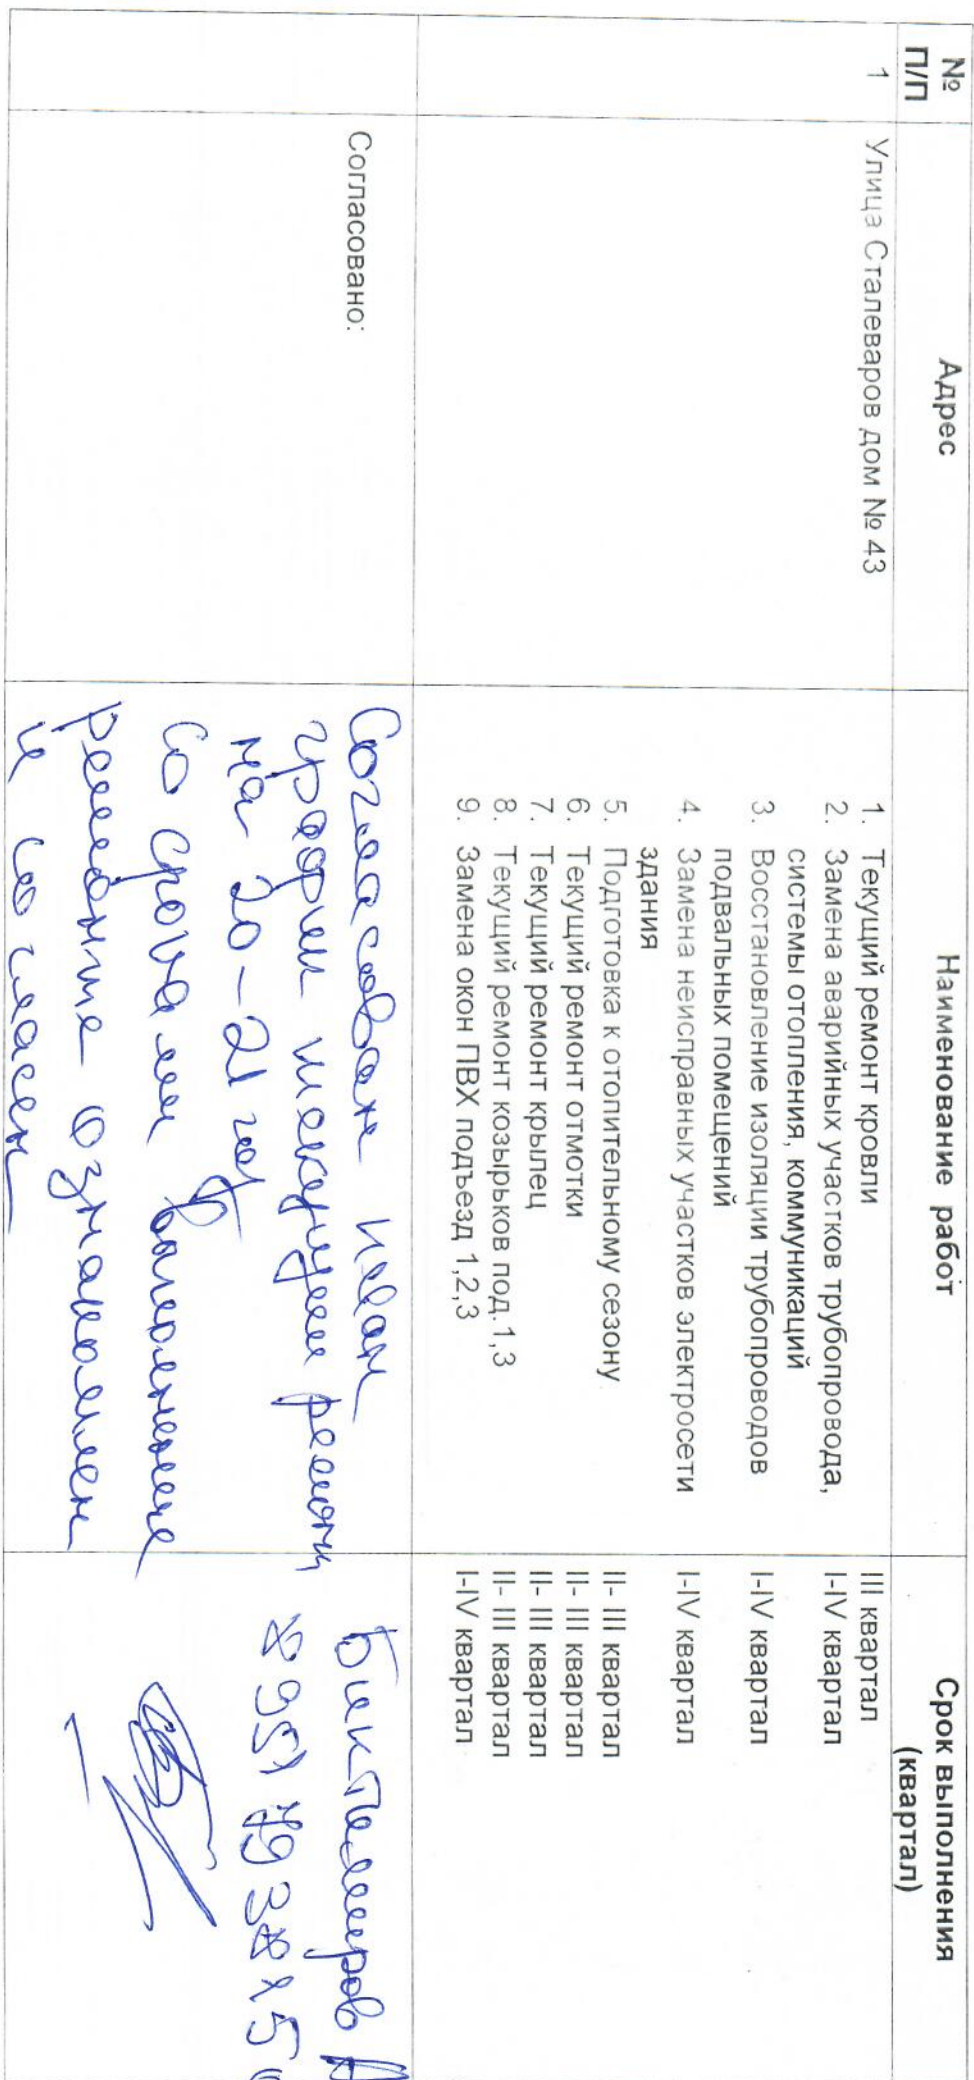 № П/П
Адрес
Наименование работ
Срок выполнения (квартал)
1
Улица Сталеваров дом № 43
1. Текущий ремонт кровли
III квартал
2. Замена аварийных участков трубопровода,
I-IV квартал
системы отопления, коммуникаций
3. Восстановление изоляции трубопроводов
I-IV квартал
подвальных помещений
4. Замена неисправных участков электросети
I-IV квартал
здания
5. Подготовка к отопительному сезону
II- III квартал
6. Текущий ремонт отмотки
II- III квартал
7. Текущий ремонт крылец
II- III квартал
8. Текущий ремонт козырьков под.1,3
II- III квартал
9. Замена окон ПВХ подъезд 1,2,3
I-IV квартал
Согласовано:
Согласован план
график текущего ремонт
на 20-21 год
со сроками выполнения
ремонта ознакомлен
и согласен
Биктемиров